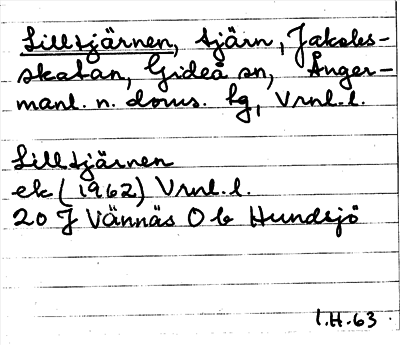 Lilltjärnen, tjärn, Jakobs-
skatan, Gideå sn, Ånger-
manl. n. doms. hg, Vrnl. l.
Lilltjärnen
ek (1962) Vrnl. l.
20 J Vännäs O b Hundsjö
I.H-63